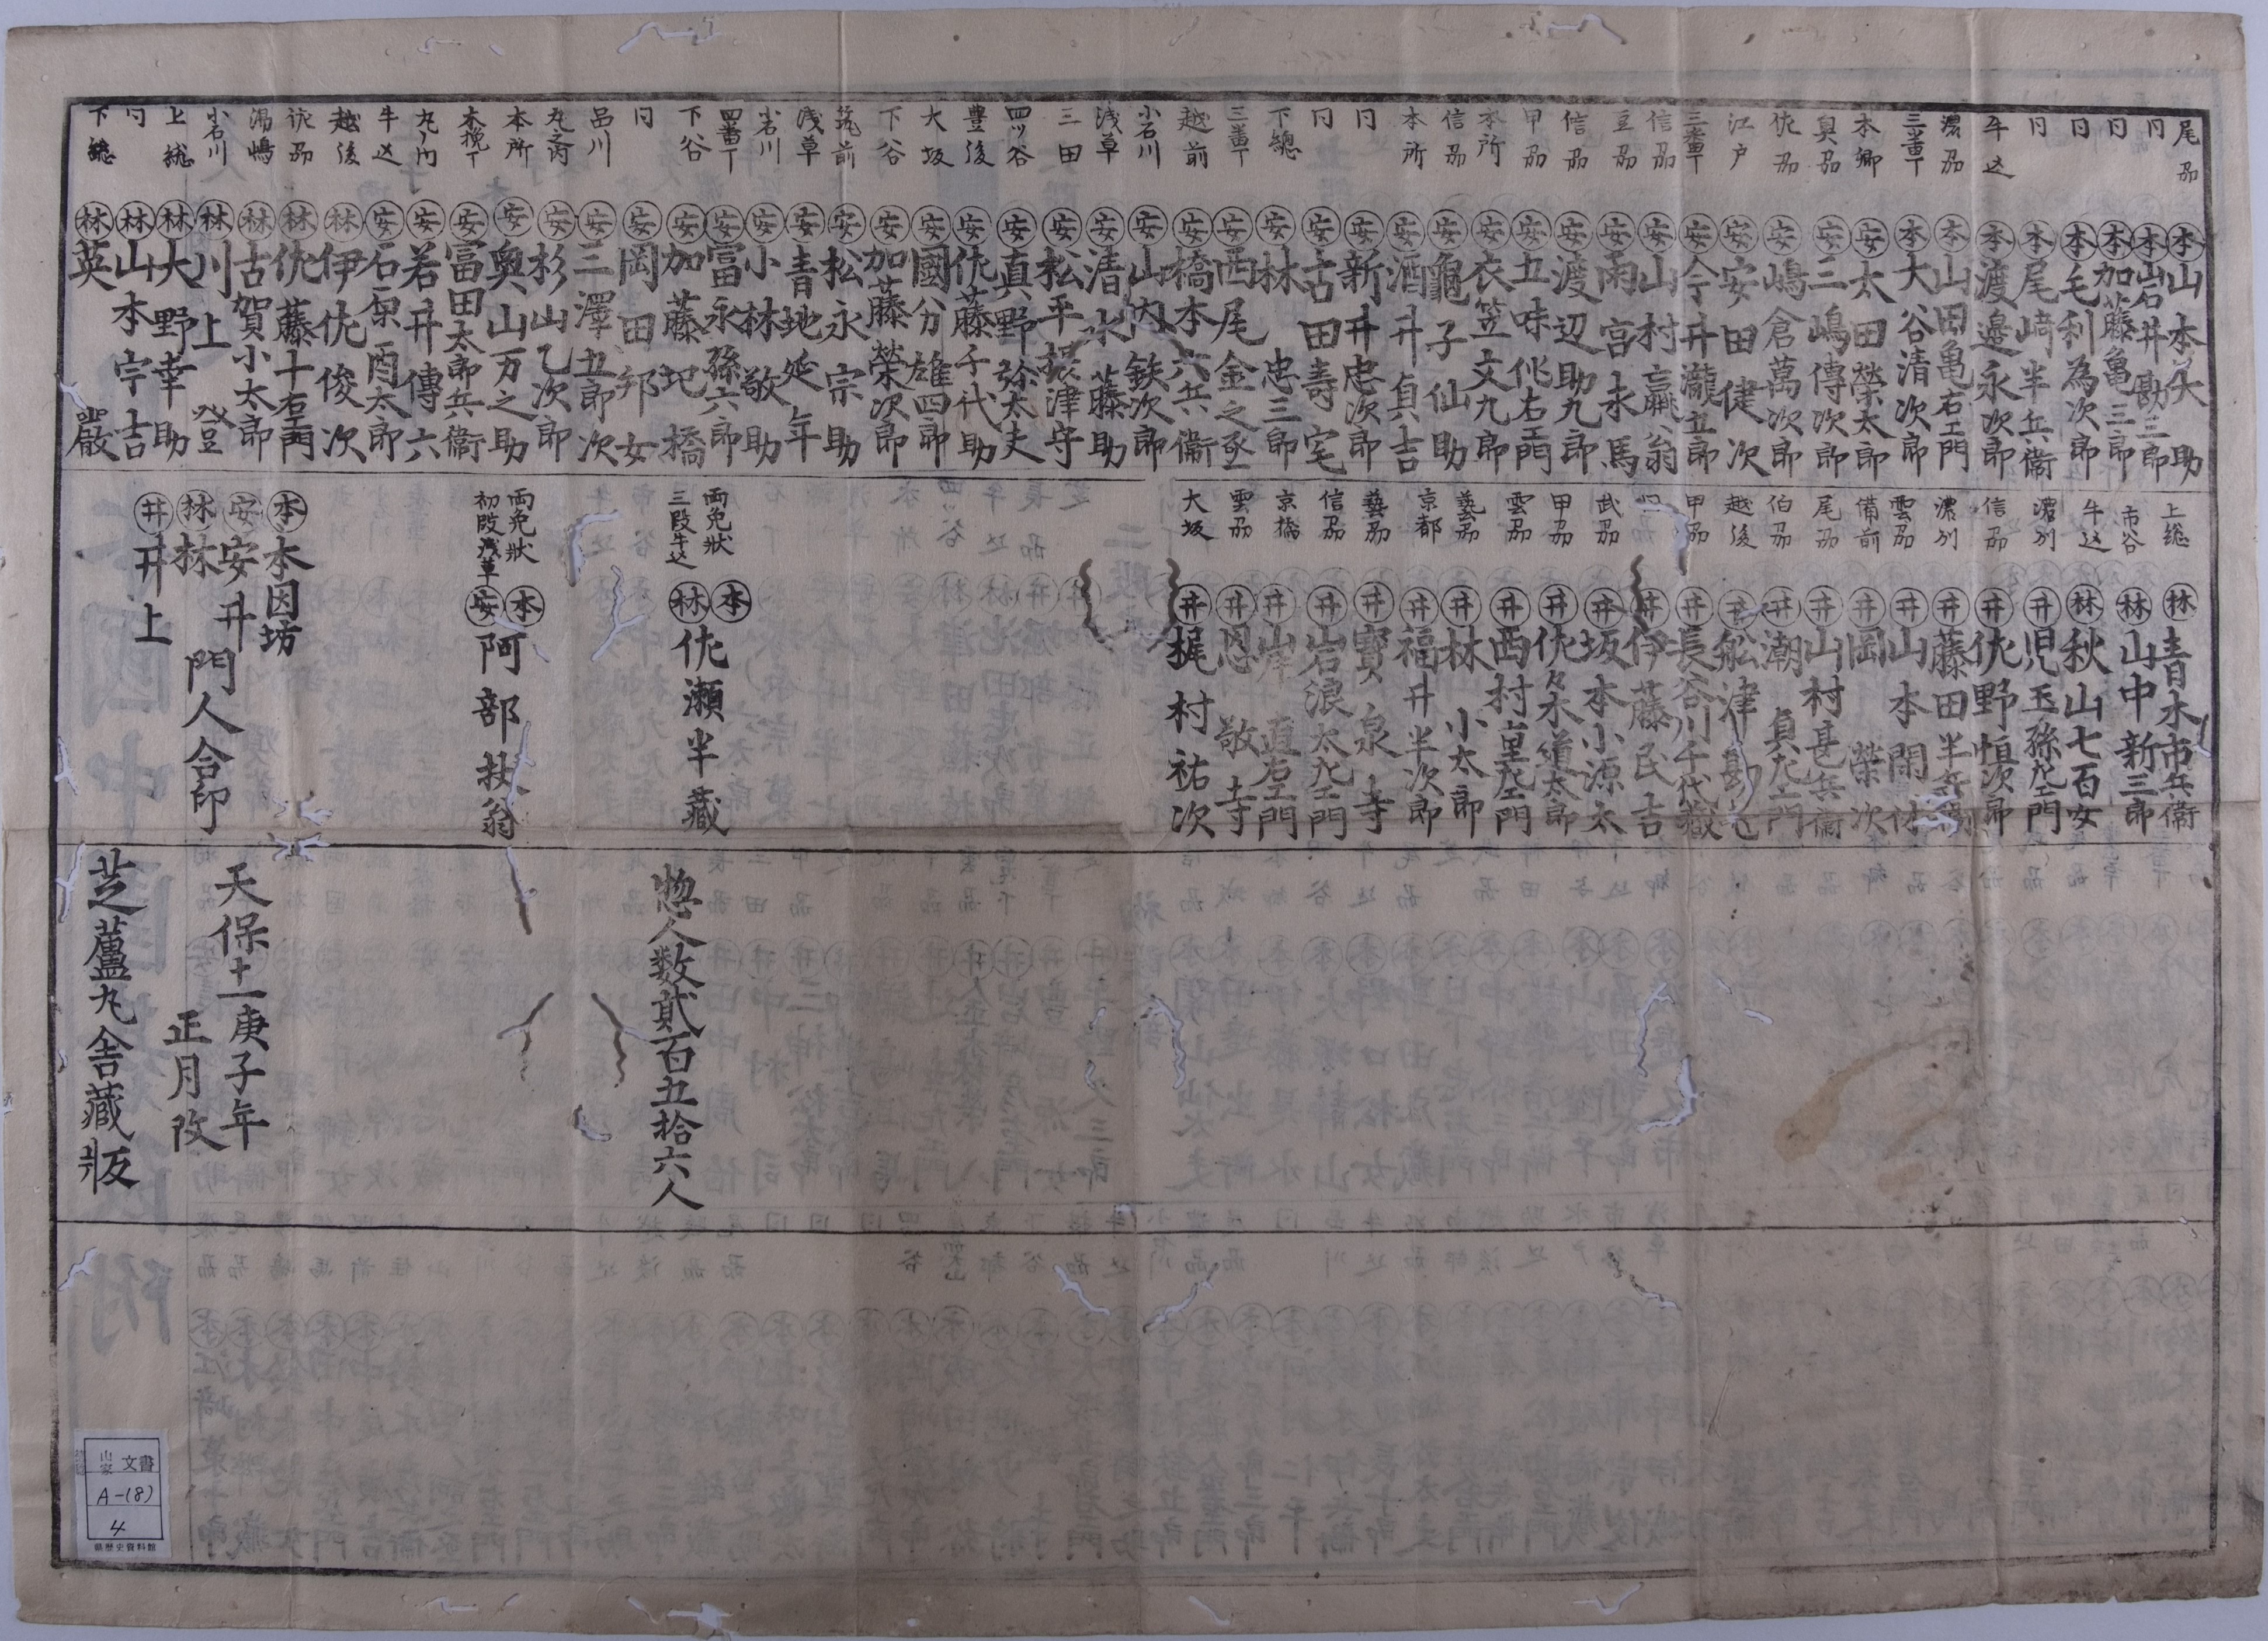 尾州 本 山本大助
同 本 岩井勘三郎
同 本 加藤亀三郎
同 本 毛利為次郎
同 本 尾崎半兵衞
牛込 本 渡邉永次郎
濃州 本 山田亀右エ門
三番丁 本 大谷清次郎
本郷 安 太田榮太郎
奥州 安 三嶋傳次郎
佐州 安 嶋倉萬次郎
江戸 安 安田健次
三番丁 安 今井瀧五郎
信州 安 山村羸翁
豆州 安 雨宮永馬
信州 安 渡辺助九郎
甲州 安 五味佻右エ門
本所 安 衣笠文九郎
信州 安 龜子仙助
本所 安 酒井貞吉
同 安 新井忠次郎
同 安 古田壽宅
下總 安 林忠三郎
三番丁 安 西尾金之丞
越前 安 橋本六兵衞
小石川 安 山内鉄次郎
浅草 安 清水藤助
三田 安 松平摂津守
四ツ谷 安 真野弥太夫
豊後 安 佐藤千代助
大坂 安 國分雄四郎
下谷 安 加藤榮次郎
筑前 安 松永宗助
浅草 安 青地延年
小石川 安 小林敬助
四番丁 安 富永孫六郎
下谷 安 加藤圯橋
同 安 岡田邦女
品川 安 三澤五郎次
丸之内 安 杉山乙次郎
本所 安 奥山万之助
木挽丁 安 富田太郎兵衞
丸ノ内 安 若井傳六
牛込 安 石原酉太郎
越後 林 伊佐俊次
佐州 林 佐藤十右エ門
湯嶋 林 古賀小太郎
小石川 林 川上登
上総 林 大野幸助
同 林 山本宇吉
下總 林 英嚴
上総 林 青木市兵衞
市谷 林 山中新三郎
牛込 林 秋山七百女
濃州 井 児玉孫左エ門
信州 井 佐野恒次郎
濃州 井 藤田半兵衞
雲州 井 山本閑休
備前 井 岡榮次
尾州 井 山村甚兵衞
伯州 井 潮貞左エ門
越後 井 舩津勘七
甲州 井 長谷川千代藏
井 伊藤民吉
武州 井 坂本小源太
甲州 井 佐々木道太郎
雲州 井 西村里左エ門
藝州 井 林小太郎
京都 井 福井半次郎
藝州 井 寶泉寺
信州 井 岩浪太左エ門
京橋 井 岸直右エ門
雲州 井 恩敬寺
大坂 井 梶村祐次
両免状
三段牛込 本 林 佐瀬半藏
両免状
初段浅草 本 安 阿部扶翁
本 本因坊
安 安井
林 林
井 井上
門人合印
惣人数貳百五拾六人
天保十一庚子年
正月改
芝蘆丸舎藏板
山家 文書
A-(8)
4
県歴史資料館